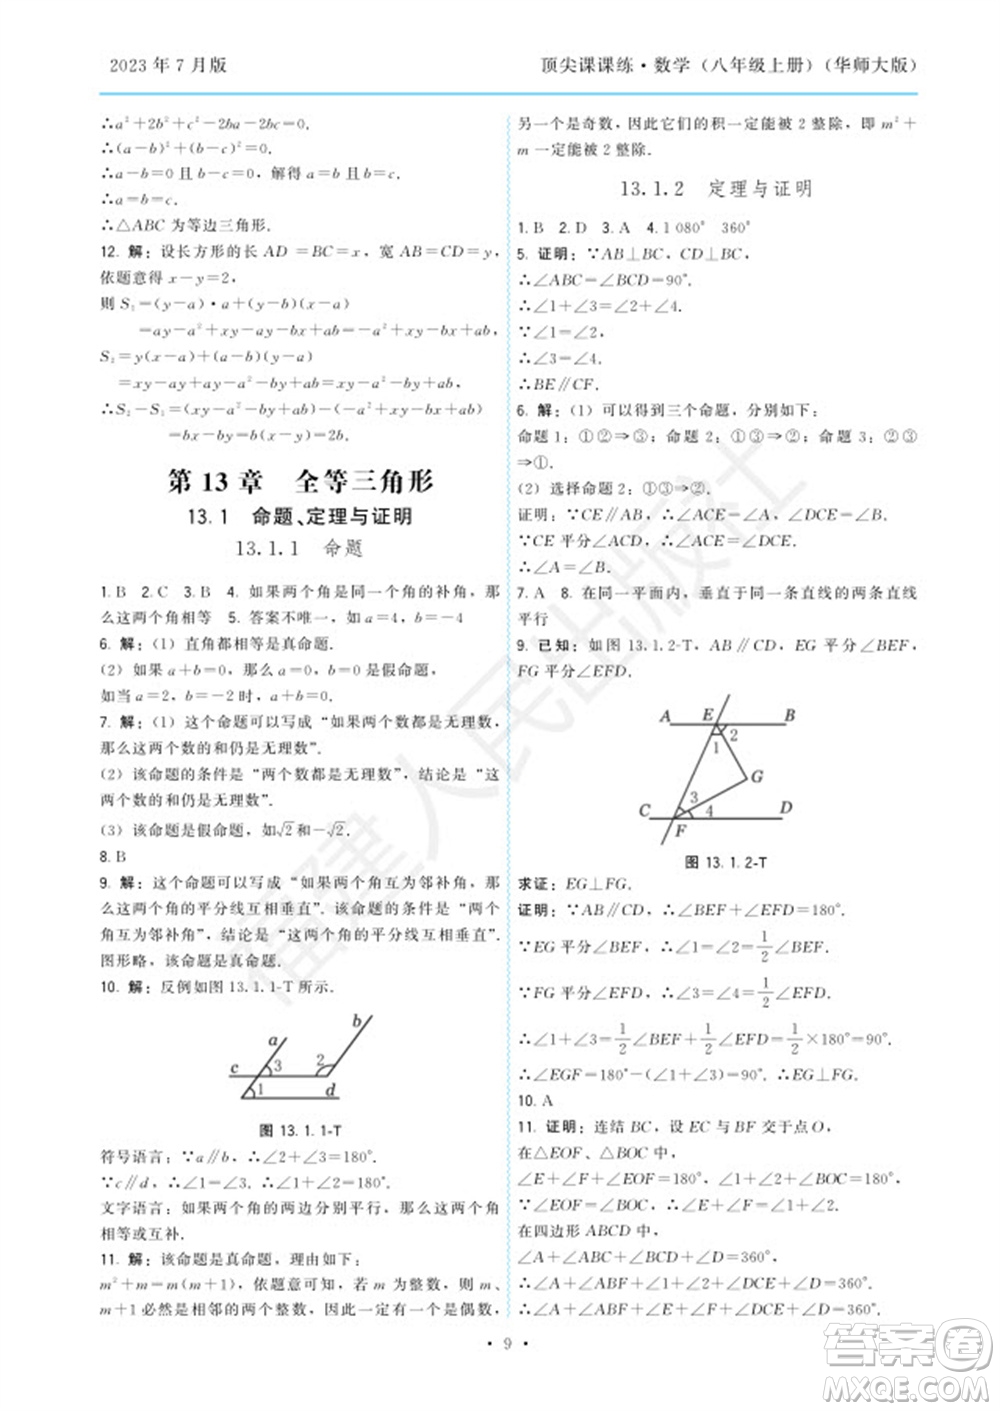 2023 年 7 月版
顶尖课课练·数学（八年级上册）（华师大版）
∴a²+2b²+c²-2ba-2bc=0.
∴(a-b)²+(b-c)²=0.
∴a-b=0 且 b-c=0，解得 a=b，b=c.
∴a=b=c.
∴△ABC 为等边三角形.
12. 解：设长方形的长 AD =BC=x，宽 AB=CD=y，
依题意得 x-y=2，
则 S₁=(x-a)·a+(y-b)(x-a)
=ax-a²+xy-ay-bx+ab=xy-a²-bx+ab，
S₂=y(x-a)+(a-b)(y-a)
=xy-ay+ay-a²-by+ab，
∴S₂-S₁=(xy-a²-by+ab)-(-a²+xy-bx+ab)
=bx-by=b(x-y)=2b.
第 13 章 全等三角形
13.1 命题、定理与证明
13.1.1 命题
1. B 2. C 3. B 4. 如果两个角是同一个角的补角，那
么这两个角相等 5. 答案不唯一，如 a=4，b=-4
6. 解：（1）直角都相等是真命题.
（2）如果 a+b=0，那么 a=0，b=0 是假命题，
如当 a=2，b=-2 时，a+b=0.
7. 解：（1）这个命题可以写成“如果两个数都是无理数，
那么这两个数的和仍是无理数”.
（2）该命题的条件是“两个数都是无理数”，结论是“这
两个数的和仍是无理数”.
（3）该命题是假命题，如√2和-√2.
8. B
9. 解：这个命题可以写成“如果两个角互为邻补角，那么
这两个角的平分线互相垂直”. 该命题的条件是“两个
角互为邻补角”，结论是“这两个角的平分线互相垂直”.
图形略，该命题是真命题.
10. 解：反例如图 13.1.1-T 所示.
a b c 3 2 1 d
图 13.1.1-T
符号语言：∵a∥b，∴∠2+∠3=180°.
∵c∥d，∴∠1=∠3，∴∠1+∠2=180°.
文字语言：如果两个角的两边分别平行，那么这两个角
相等或互补.
11. 解：该命题是真命题，理由如下：
m²+m=m(m+1)，依题意可知，若 m 为整数，则 m、
m+1 必然是相邻的两个整数，因此一定有一个是偶数，
另一个是奇数，因此它们的积一定能被 2 整除，即 m²+
m 一定能被 2 整除.
13.1.2 定理与证明
1. B 2. D 3. A 4. 1 080° 360°
5. 证明：∵AB⊥BC，CD⊥BC，
∴∠ABC=∠BCD=90°.
∴∠1+∠3=∠2+∠4.
∵∠1=∠2，
∴∠3=∠4.
∴BE∥CF.
6. 解：（1）可以得到三个命题，分别如下：
命题 1：①②⇒③；命题 2：①③⇒②；命题 3：②③
⇒①.
（2）选择命题 2：①③⇒②.
证明：∵CE∥AB，∴∠ACE=∠A，∠DCE=∠B.
∵CE 平分∠ACD，∴∠ACE=∠DCE.
∴∠A=∠B.
7. A 8. 在同一平面内，垂直于同一条直线的两条直线
平行
9. 已知：如图 13.1.2-T，AB∥CD，EG 平分∠BEF，
FG 平分∠EFD.
A E B 2 1 G 3 4 C F D
图 13.1.2-T
求证：EG⊥FG.
证明：∵AB∥CD，∴∠BEF+∠EFD=180°.
∵EG 平分∠BEF，∴∠1=∠2=1/2∠BEF.
∵FG 平分∠EFD，∴∠3=∠4=1/2∠EFD.
∴∠1+∠3=1/2∠BEF+1/2∠EFD=1/2×180°=90°.
∴∠EGF=180°-(∠1+∠3)=90°. ∴EG⊥FG.
10. A
11. 证明：连结 BC，设 EC 与 BF 交于点 O，
在△EOF、△BOC 中，
∠E+∠F+∠EOF=180°，∠1+∠2+∠BOC=180°.
∵∠EOF=∠BOC，∴∠E+∠F=∠1+∠2.
在四边形 ABCD 中，
∠A+∠ABC+∠BCD+∠D=360°，
∴∠A+∠ABF+∠1+∠2+∠DCE+∠D=360°.
∴∠A+∠ABF+∠E+∠F+∠DCE+∠D=360°，
· 9 ·
福建人民出版社
答案圈
MXQE.COM